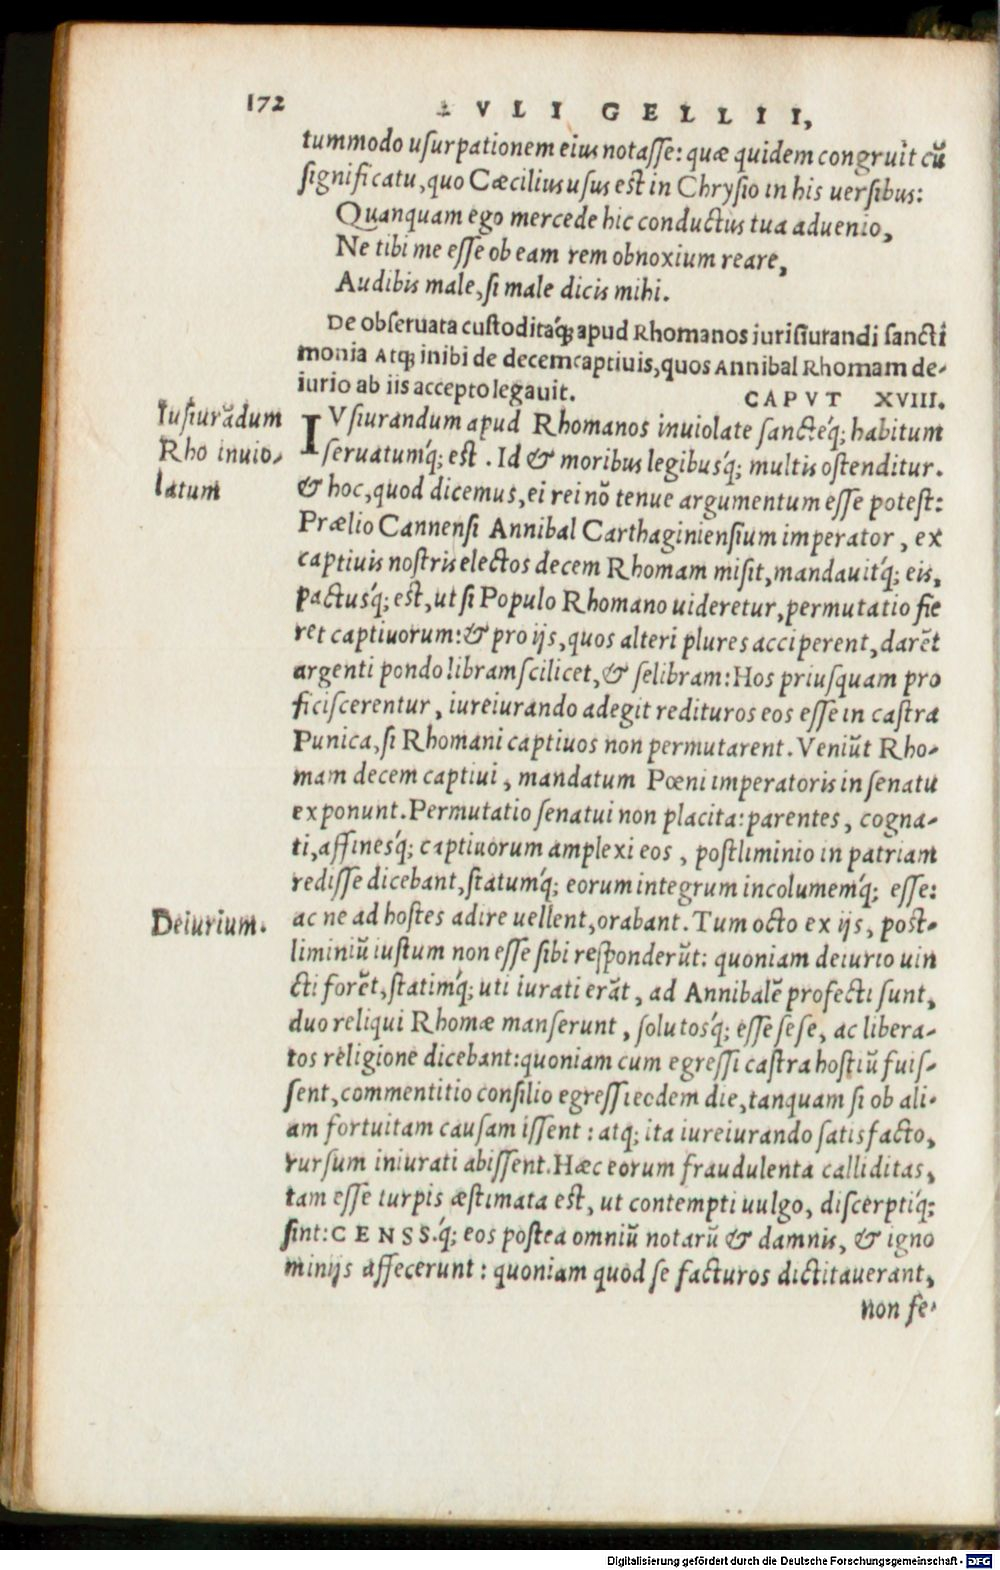 172
AVLI GELLII,
tummodo uſurpationem eius notaſſe: quæ quidem congruit cū
ſignificatu, quo Cæcilius uſus eſt in Chryſio in his uerſibus:
Quanquam ego mercede hic conductus tua aduenio,
Ne tibi me eſſe ob eam rem obnoxium reare,
Audibis male, ſi male dicis mihi.
De obſeruata cuſtoditaq́; apud Rhomanos iuriſiurandi ſancti
monia Atq; inibi de decem captiuis, quos Annibal Rhomam de-
iurio ab iis accepto legauit. CAPVT XVIII.
Iuſiurādum
Rho inuio-
latum
IVſiurandum apud Rhomanos inuiolate ſancteq́; habitum
ſeruatumq́; eſt. Id & moribus legibusq́; multis oſtenditur.
& hoc, quod dicemus, ei rei nō tenue argumentum eſſe poteſt:
Prælio Cannenſi Annibal Carthaginienſium imperator, ex
captiuis noſtris electos decem Rhomam miſit, mandauitq́; eis,
pactusq́; eſt, ut ſi Populo Rhomano uideretur, permutatio fie
ret captiuorum: & pro ijs, quos alteri plures acciperent, darēt
argenti pondo libram ſcilicet, & ſelibram: Hos priuſquam pro
ficiſcerentur, iureiurando adegit redituros eos eſſe in caſtra
Punica, ſi Rhomani captiuos non permutarent. Veniūt Rho-
mam decem captiui, mandatum Pœni imperatoris in ſenatu
exponunt. Permutatio ſenatui non placita: parentes, cogna-
ti, affinesq́; captiuorum amplexi eos, poſtliminio in patriam
rediſſe dicebant, ſtatumq́; eorum integrum incolumemq́; eſſe:
Deiurium.
ac ne ad hoſtes adire uellent, orabant. Tum octo ex ijs, poſt-
liminiū iuſtum non eſſe ſibi reſponderūt: quoniam deiurio uin
cti forēt, ſtatimq́; uti iurati erāt, ad Annibalē profecti ſunt,
duo reliqui Rhomæ manſerunt, ſolutosq́; eſſe ſeſe, ac libera-
tos religione dicebant: quoniam cum egreſſi caſtra hoſtiū fuiſ-
ſent, commentitio conſilio egreſſi eodem die, tanquam ſi ob ali-
am fortuitam cauſam iſſent: atq; ita iureiurando ſatisfacto,
rurſum iniurati abiſſent. Hæc eorum fraudulenta calliditas,
tam eſſe turpis æſtimata eſt, ut contempti uulgo, diſcerptiq́;
ſint: CENSS.q́; eos poſtea omniū notarū & damnis, & igno
minijs affecerunt: quoniam quod ſe facturos dictitauerant,
non fe-
Digitalisierung gefördert durch die Deutsche Forschungsgemeinschaft - DFG